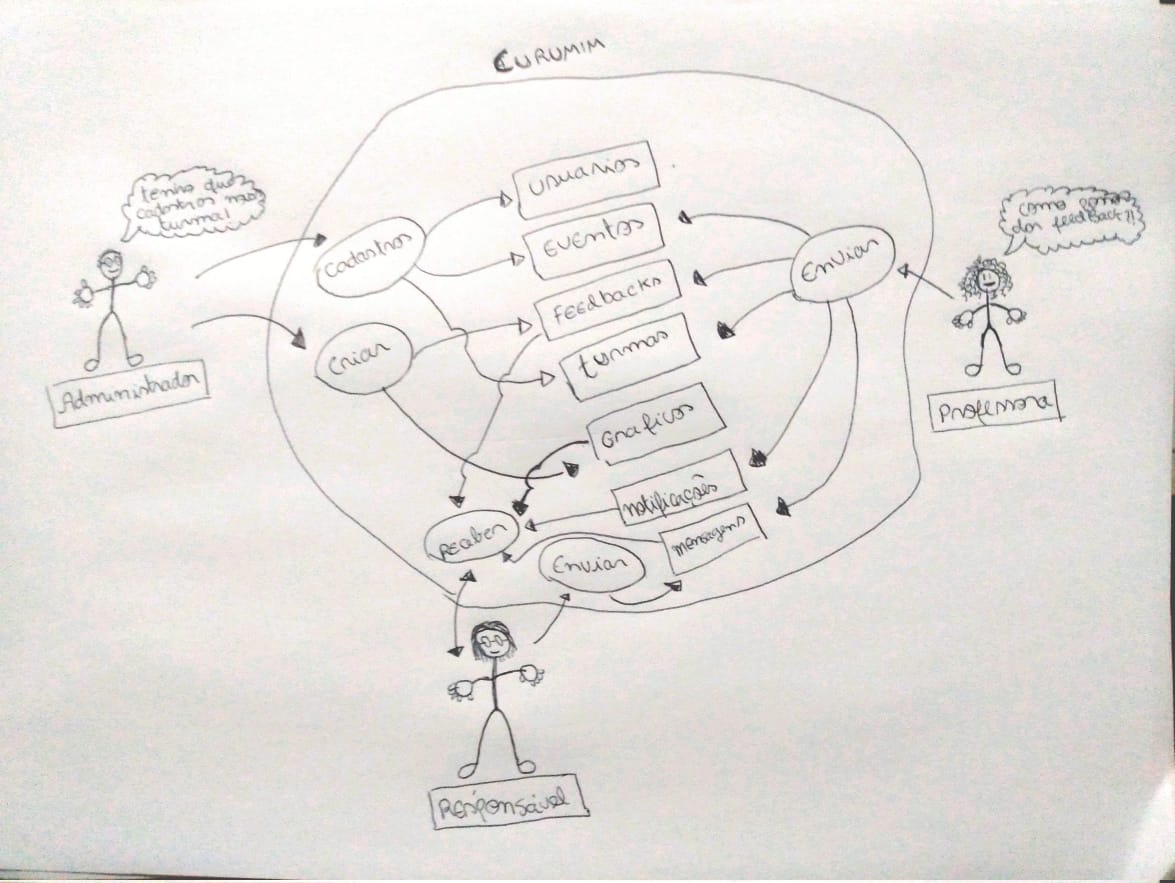 CURUMIM
tenho que
cadastros nao
turma!
Administrador
cadastros
criar
usuarios
EVENTOS
FEEdbacks
turmas
Graficos
notificações
mensagens
Enviar
Receber
Enviar
como
dar feedBack?!
Professora
Responsável